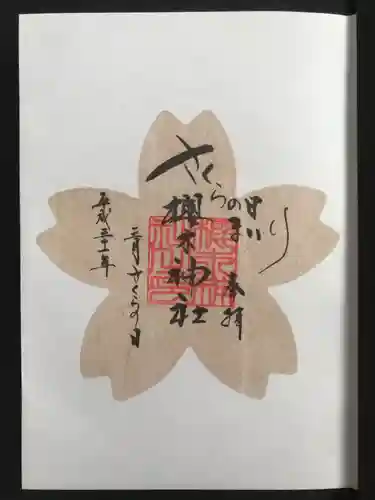 奉拝
さくらの日まいり
櫻木神社
三月さくらの日
平成三十一年